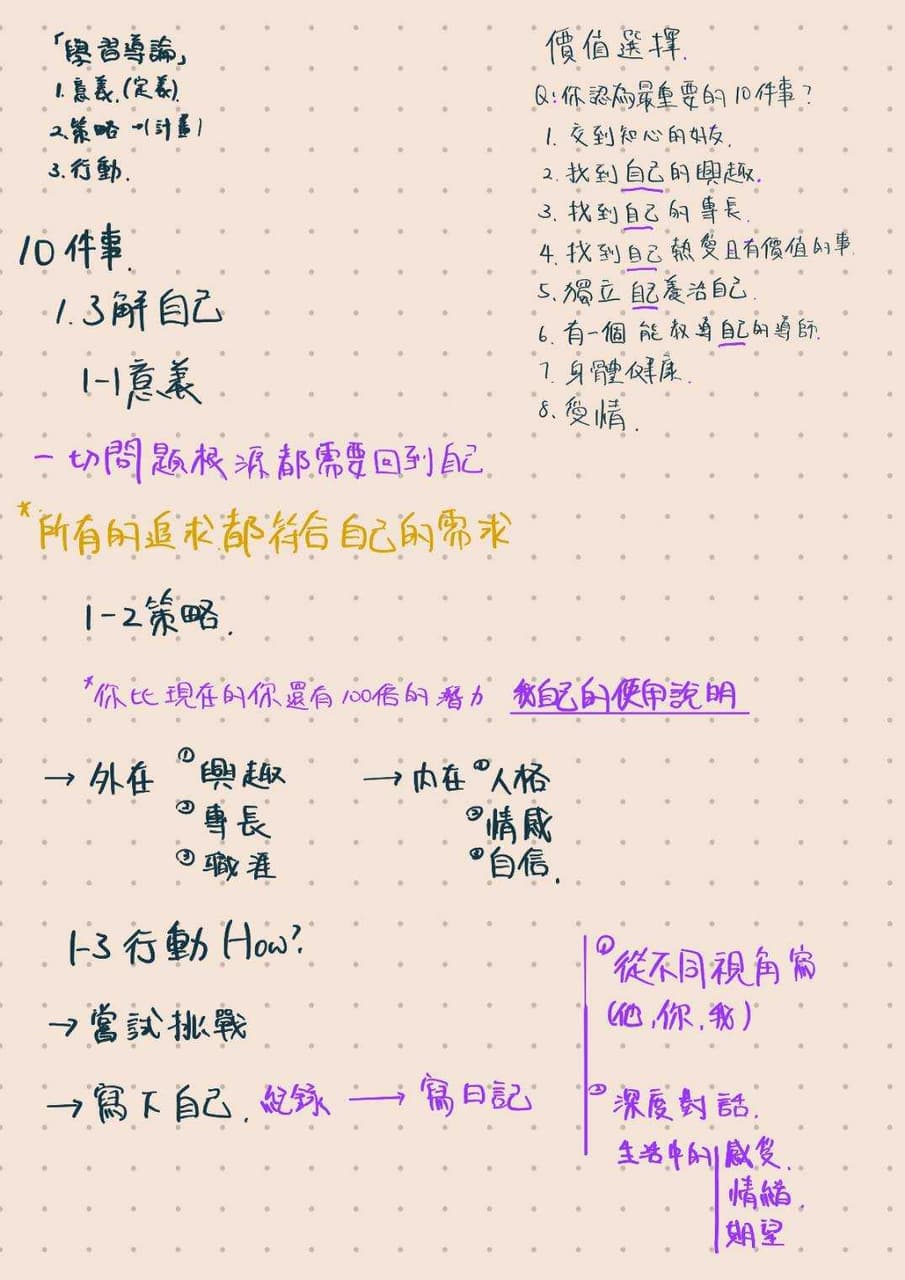 「學習導論」
1.意義.(定義).
2.策略→(計畫)
3.行動.
價值選擇.
Q:你認為最重要的10件事?
1. 交到知心的好友.
2. 找到自己的興趣.
3. 找到自己的專長.
4. 找到自己熱愛且有價值的事.
5. 獨立自己養活自己.
6. 有一個能教導自己的導師.
7. 身體健康.
8. 愛情.
10件事.
1.了解自己
1-1意義
一切問題根源都需要回到自己
*所有的追求都符合自己的需求
1-2策略.
*你比現在的你還有100倍的潛力 我自己的使用說明
→外在 ①興趣
②專長
③職涯
→內在 ①人格
②情感
③自信.
1-3行動How?
→嘗試挑戰
→寫下自己.紀錄→寫日記
①從不同視角寫
(他,你,我)
②深度對話.
生活中的 感受.
情緒.
期望